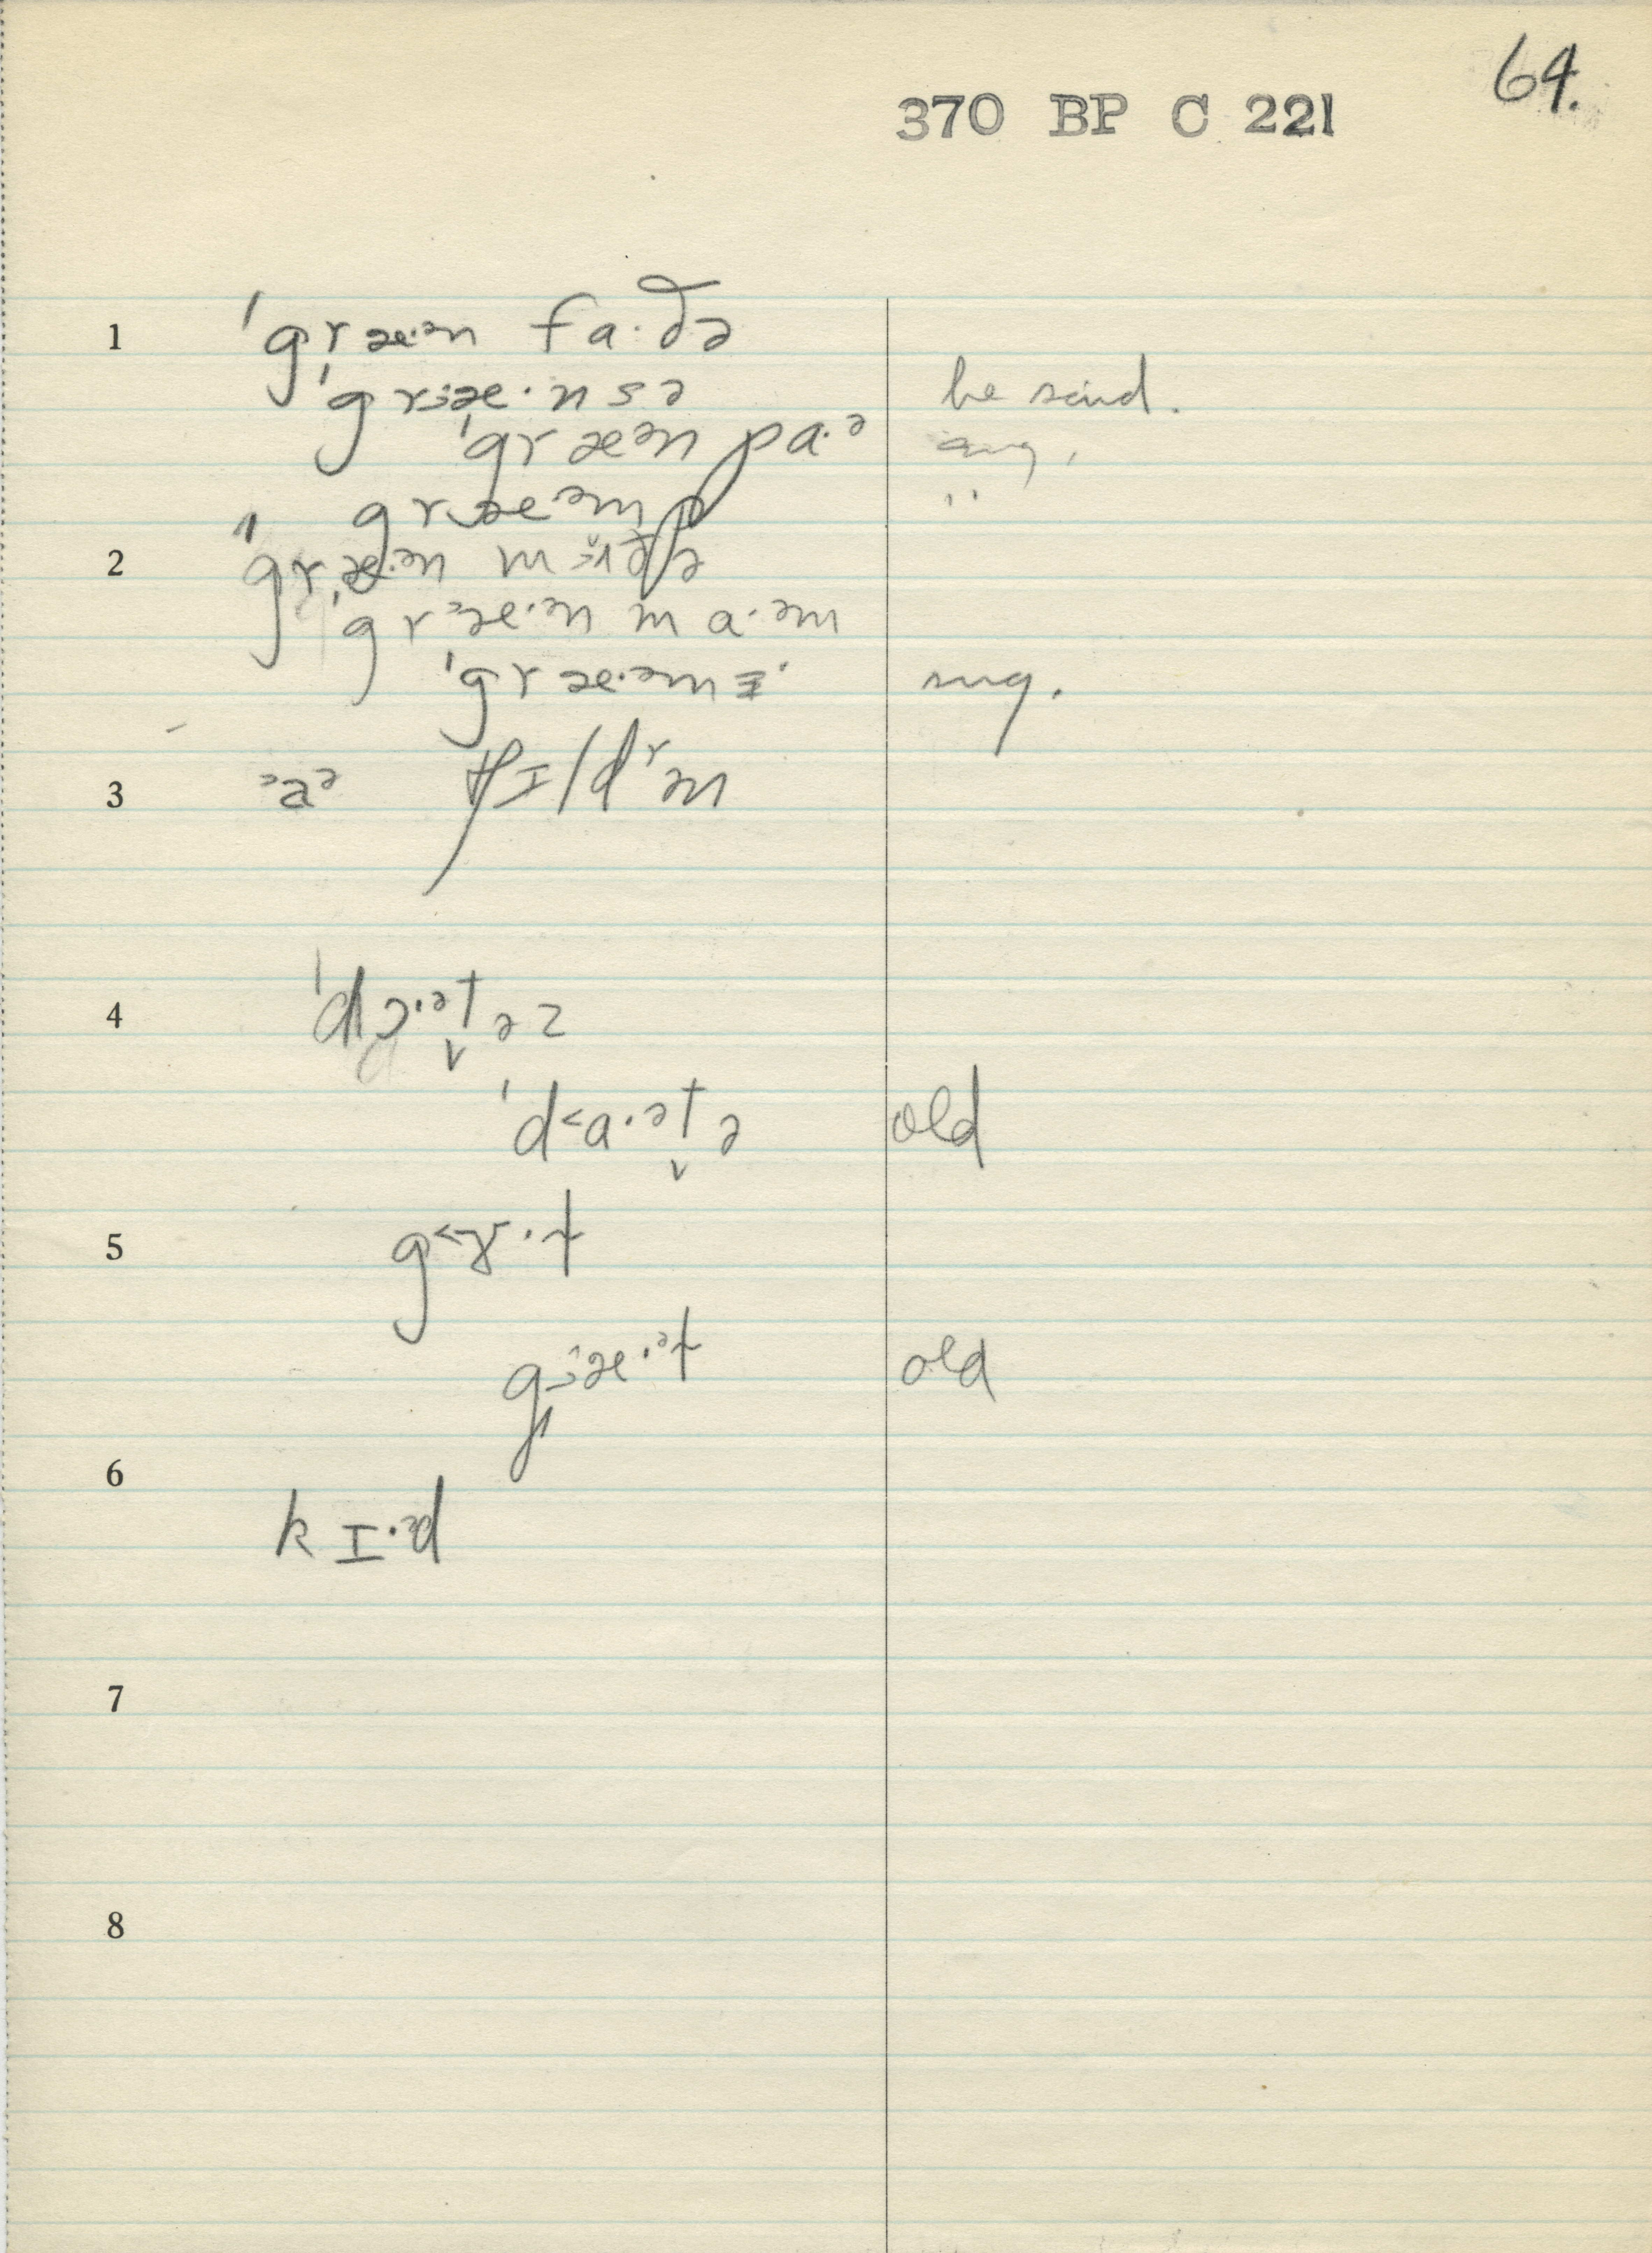 64.
370 BP C 221
1 ˈgræ·ᵊn fa·ðə
ˈgræ·nsə he said.
ˈgræᵊn pa·ᵊ
græ·ᵊmp "
2 ˈgræ·ᵊn mʌðə
ˈgrᵊæ·ᵊn ma·ᵊm
ˈgræ·ᵊm sug.
3 ᵊaᵊ
4 ˈdɔ·ᵊt̬əz
ˈd˂a·ᵊt̬ə old
5 g˂ɤ·ɫ
gæ·ᵊɫ old
6 kɪ·ᵊd
7
8